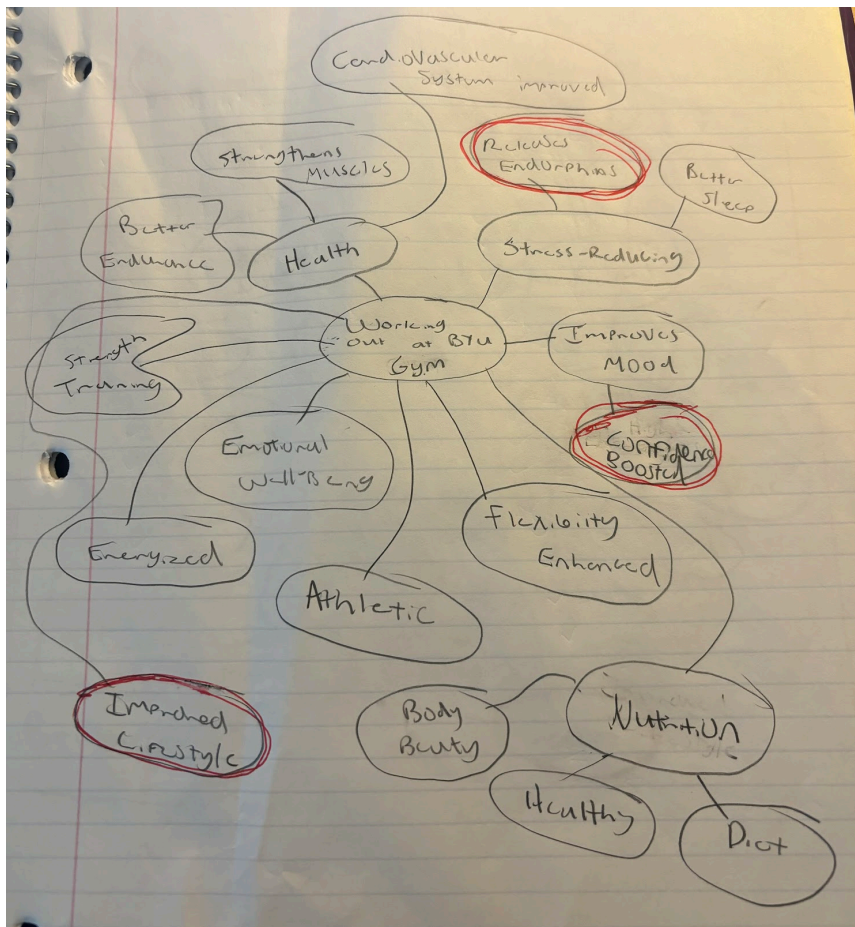 Cardiovascular
System improved
Strengthens
Muscles
Releases
Endorphins
Better
Sleep
Better
Endurance
Health
Stress-Reducing
Working
out at BYU
Gym
Improves
Mood
Strength
Training
Confidence
Boosted
Emotional
Well-Being
Flexibility
Enhanced
Energized
Athletic
Improved
Lifestyle
Body
Beuty
Nutrition
Healthy
Diet